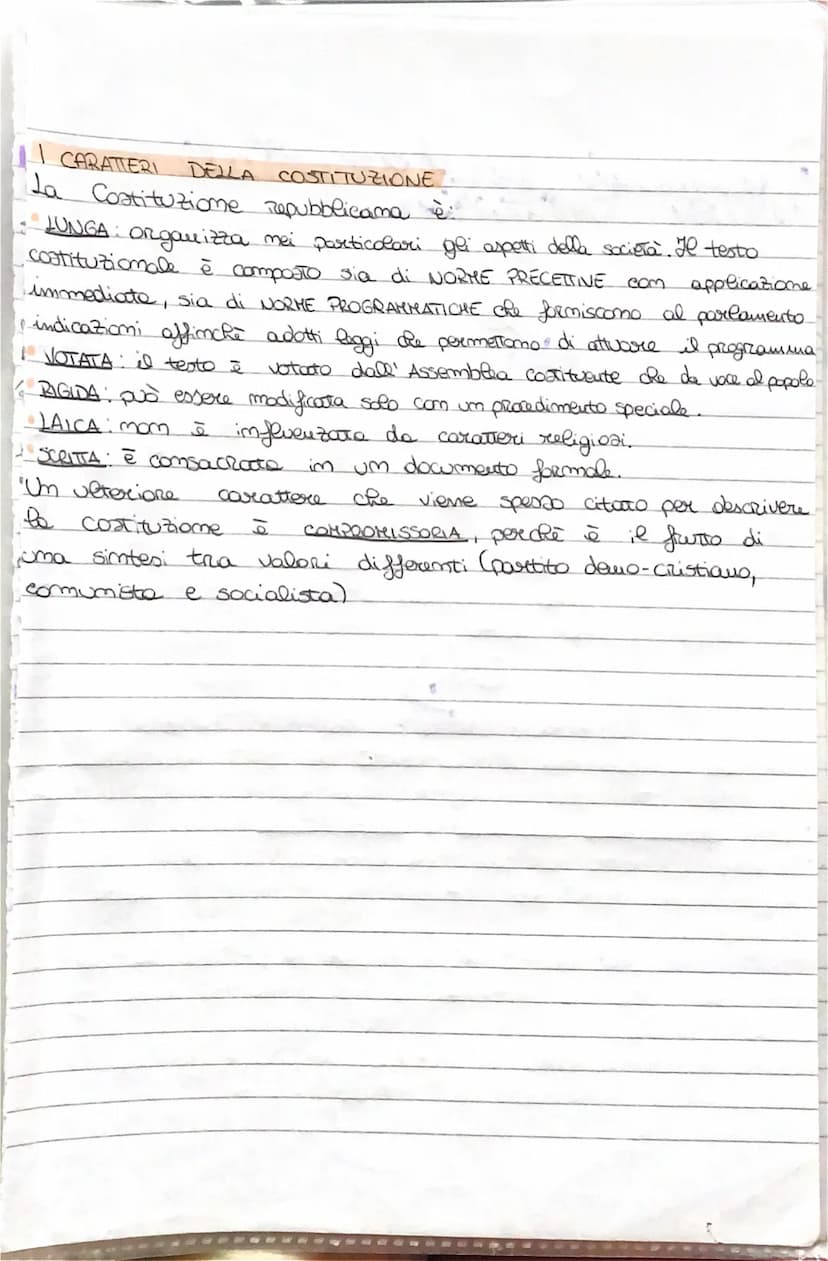 I CARATTERI DELLA COSTITUZIONE
La Costituzione repubblicana è:
• LUNGA: organizza nei particolari gli aspetti della società. Il testo
costituzionale è composto sia di NORME PRECETTIVE con applicazione
immediata, sia di NORME PROGRAMMATICHE che forniscono al parlamento
indicazioni affinchè adotti leggi che permettono di attuare il programma
• VOTATA: il testo è votato dall'Assemblea costituente che da voce al popolo
• RIGIDA: può essere modificata solo con un procedimento speciale.
• LAICA: non è influenzata da caratteri religiosi.
• SCRITTA: è consacrata in un documento formale.
Un ulteriore carattere che viene spesso citato per descrivere
la costituzione è COMPROMISSORIA, perchè è il frutto di
una sintesi tra valori differenti (partito demo-cristiano,
comunista e socialista)